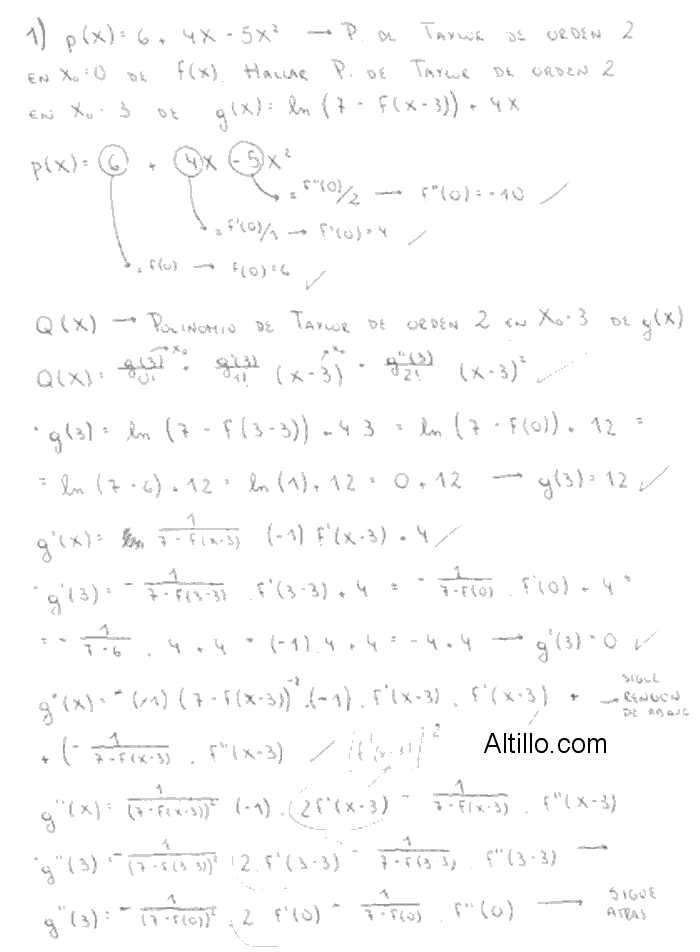 1) p(x) = 6 + 4x - 5x² → P. DE TAYLOR DE ORDEN 2
EN x₀=0 DE f(x). HALLAR P. DE TAYLOR DE ORDEN 2
EN x₀ = 3 DE g(x) = ln (7 - f(x-3)) + 4x
p(x) = 6 + 4x - 5x²
= f''(0)/2 → f''(0) = -10 ✓
= f'(0)/1 → f'(0) = 4 ✓
= f(0) → f(0) = 6 ✓
Q(x) → POLINOMIO DE TAYLOR DE ORDEN 2 EN x₀=3 DE g(x)
Q(x) = g(3)/0! + g'(3)/1! (x-3) + g''(3)/2! (x-3)² ✓
→ x₀ → x₀
· g(3) = ln (7 - f(3-3)) + 4.3 = ln (7 - f(0)) + 12 =
= ln (7-6) + 12 = ln (1) + 12 = 0 + 12 → g(3) = 12 ✓
g'(x) = 1/(7 - f(x-3)) (-1) f'(x-3) + 4 ✓
· g'(3) = - 1/(7 - f(3-3)) . f'(3-3) + 4 = - 1/(7 - f(0)) . f'(0) + 4 =
= - 1/(7-6) . 4 + 4 = (-1) . 4 + 4 = -4 + 4 → g'(3) = 0 ✓
g''(x) = - (-1) (7 - f(x-3))⁻² . (-1) . f'(x-3) . f'(x-3) + → SIGUE RENGLON DE ABAJO
+ (- 1/(7 - f(x-3)) . f''(x-3) ✓ [f'(x-3)]²
Altillo.com
g''(x) = 1/(7 - f(x-3))² (-1) . 2f'(x-3) - 1/(7 - f(x-3)) . f''(x-3)
· g''(3) = - 1/(7 - f(3-3))² . 2 . f'(3-3) - 1/(7 - f(3-3)) . f''(3-3) →
g''(3) = - 1/(7 - f(0))² . 2 f'(0) - 1/(7 - f(0)) . f''(0) → SIGUE ATRAS